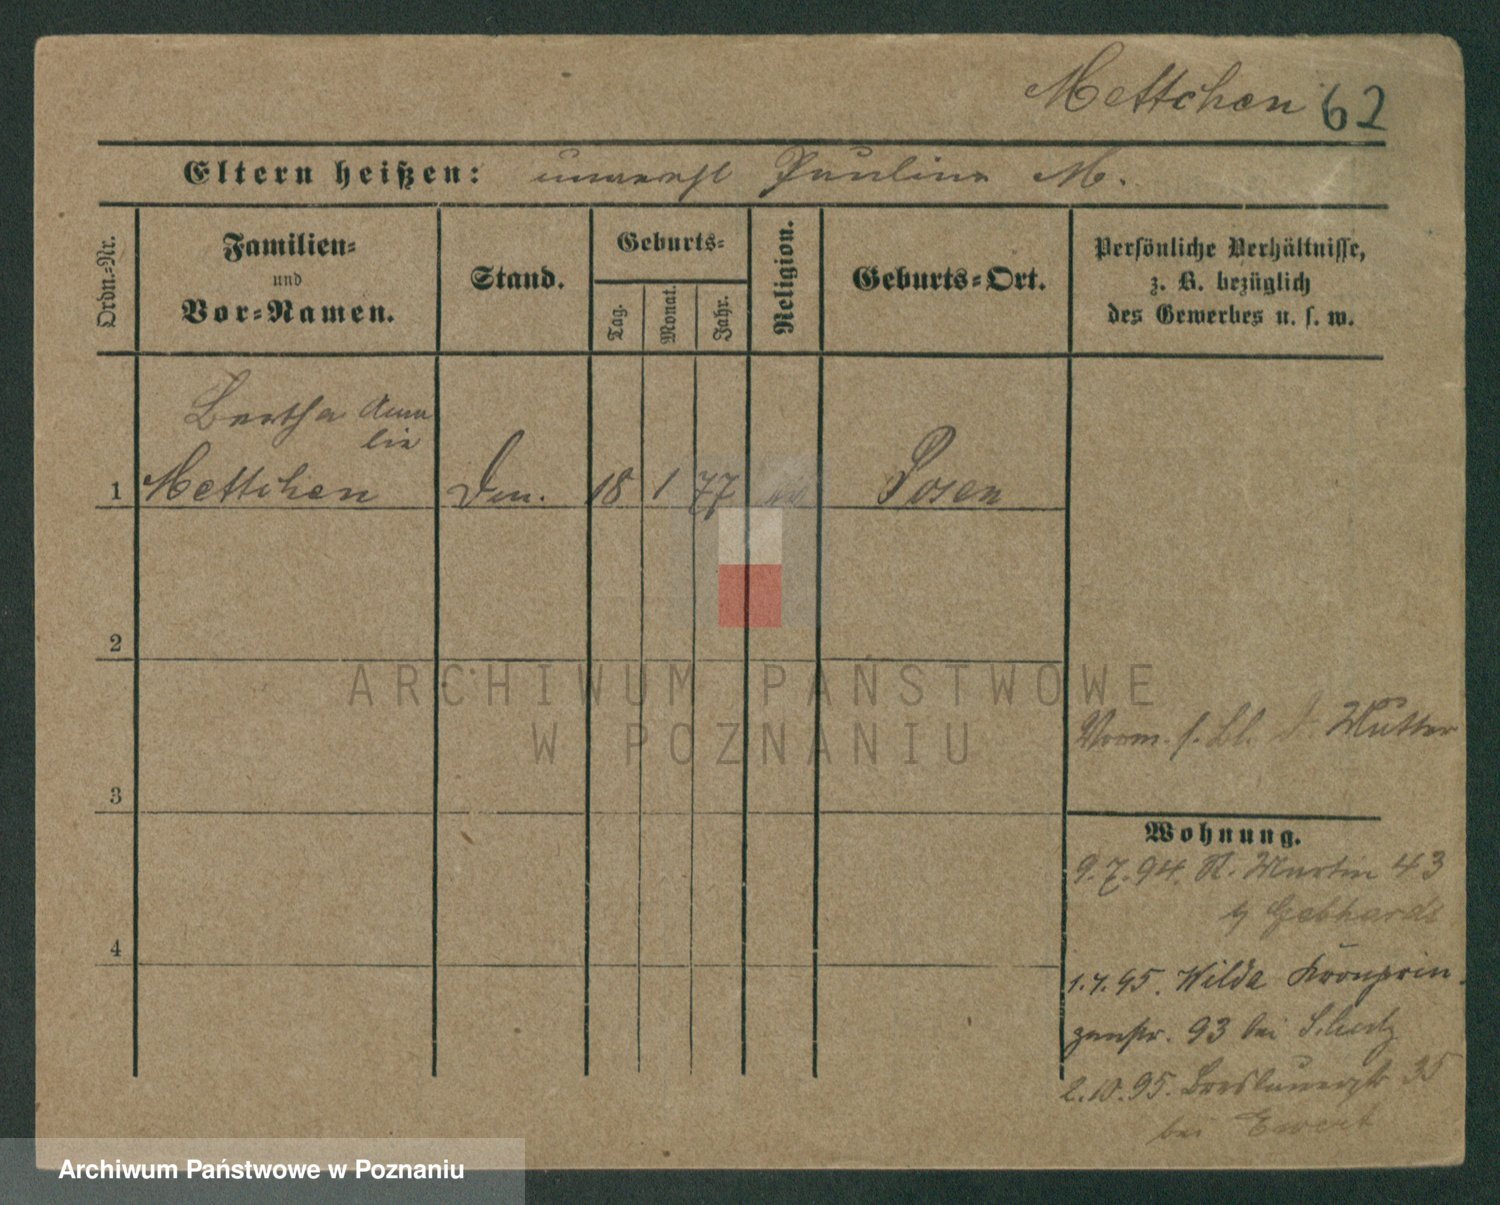 Mettchen 62
Eltern heißen: unverehl Pauline M.
Ordn.-Nr.
Familien-
und
Vor-Namen.
Stand.
Geburts-
Tag.
Monat.
Jahr.
Religion.
Geburts-Ort.
Persönliche Verhältnisse,
z. B. bezüglich
des Gewerbes u. s. w.
Bertha Ama
lie
1 Mettchen 18 1 77 Posen
2
ARCHIWUM PAŃSTWOWE
W POZNANIU
Vorm. s. Bl. d. Mutter
3
Wohnung.
9.7.94. St. Martin 43
b/ Gebhards
4
1.7.95. Wilda Kronprin-
zenstr. 93 bei
2.10.95. Breslauerstr 35
bei Ewert
Archiwum Państwowe w Poznaniu